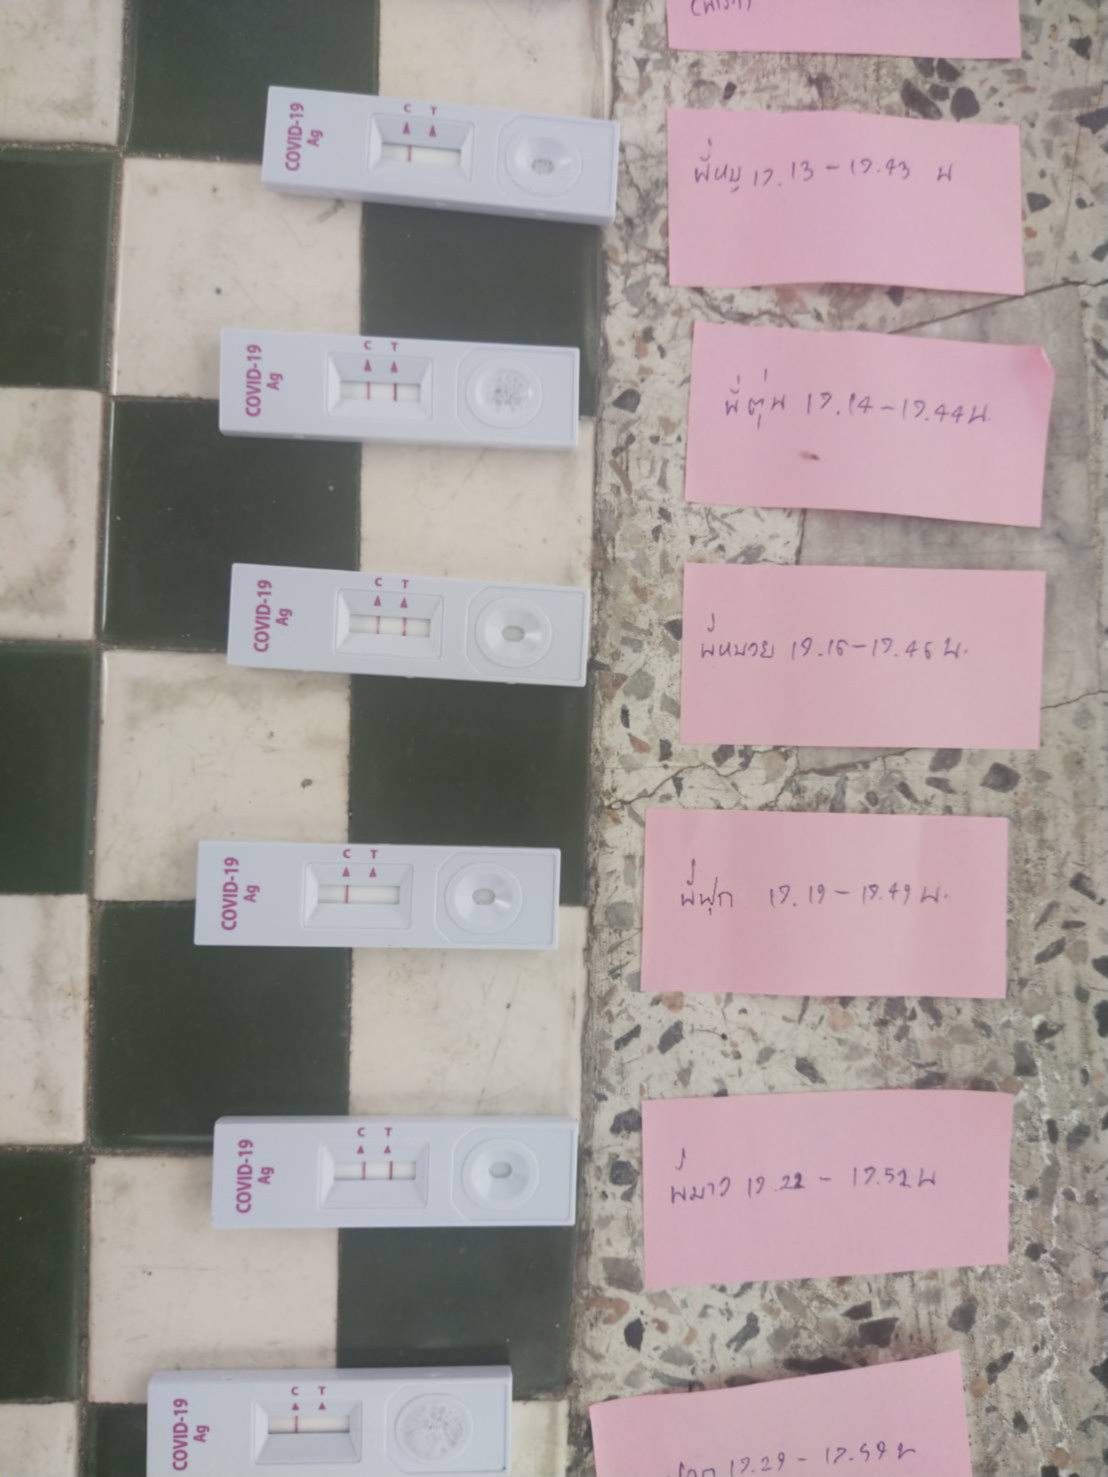 COVID-19
Ag
C T
พี่หมู 17.13 - 17.43 น
COVID-19
Ag
C T
พี่ตุ่น 17.14 - 17.44 น.
COVID-19
Ag
C T
พี่หมวย 17.16 - 17.46 น.
COVID-19
Ag
C T
พี่ฟุก 17.19 - 17.49 น.
COVID-19
Ag
C T
พี่มาว 17.22 - 17.52 น
COVID-19
Ag
C T
17.29 - 17.59 น